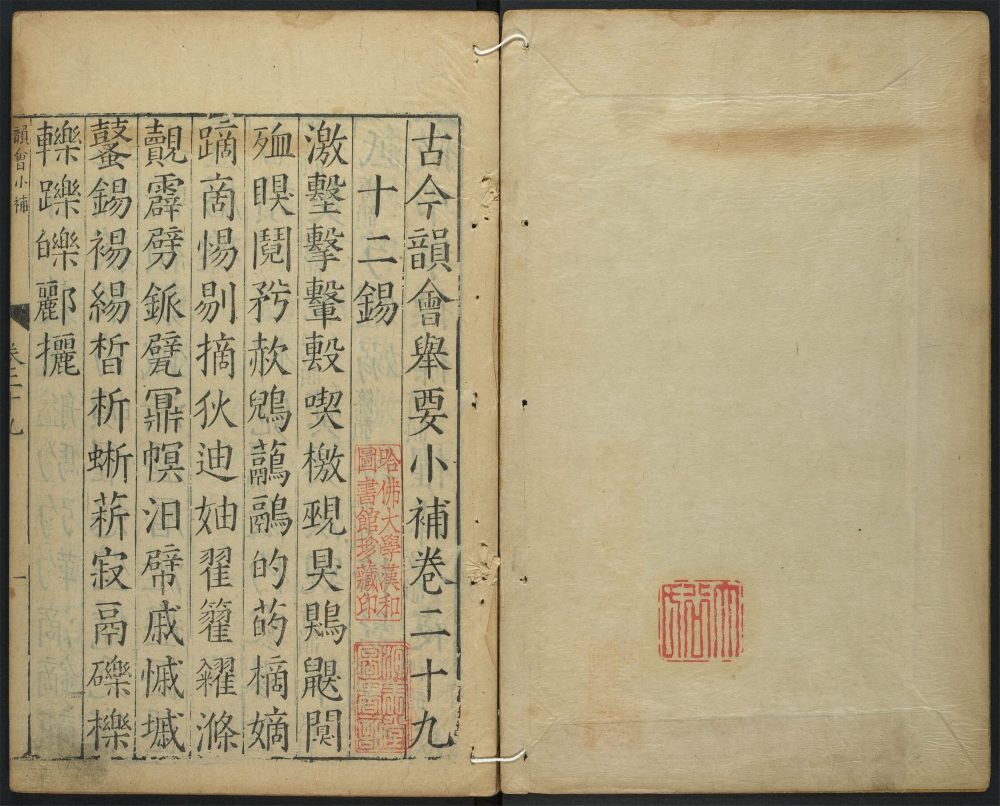 古今韻會舉要小補卷二十九
十二錫
激墼擊轚㱾喫檄覡狊鶪鼳闃
殈瞁鬩㸹欶鶂虉鷊的菂樀嫡
蹢啇惕剔摘狄迪妯翟籊糴滌
覿霹劈鈲甓鼏幎汨幦戚慽墄
鼜錫裼緆皙析蜥菥寂鬲礫櫟
轢躒皪酈攦
韻會小補
卷二十九
一
哈佛大學漢和
圖書館珍藏印
圖書